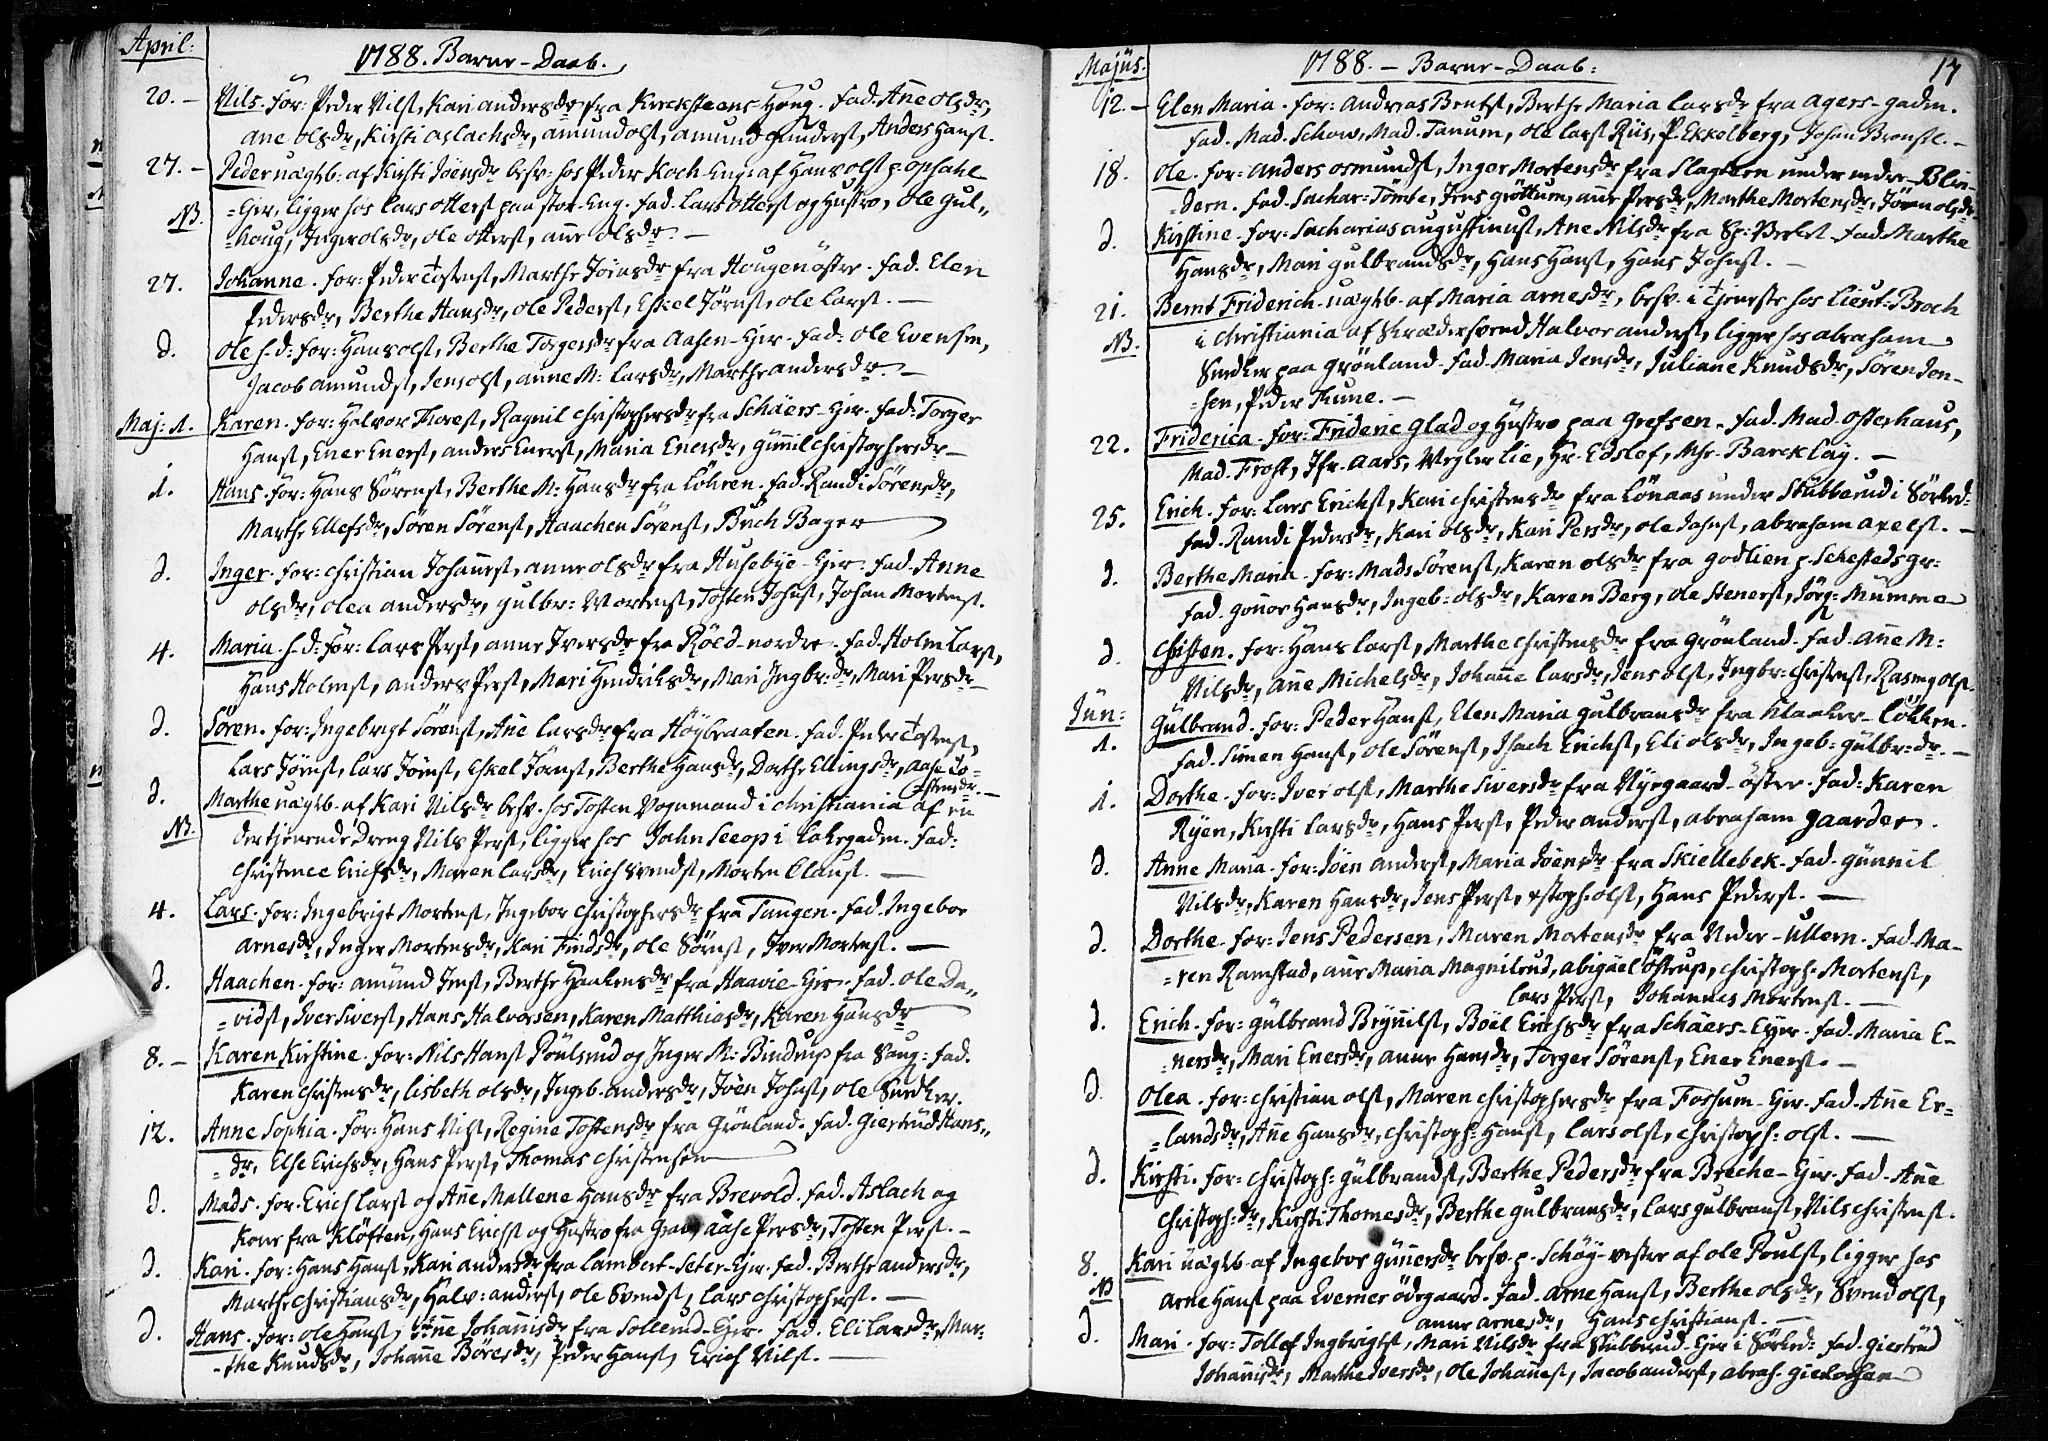 April:
1788. Barne-Daab.
20. - Nils. For: Peder Nilss., Kari Andersdr fra Kirchsteens-Houg. Fad. Ane Olsdr,
Ane Olsdr, Kirsti Aslachsdr, Amund Olss., Amund Gunders., Anders Hanss.
27. - Peder uægtb: af Kirsti Joensdr besv: hos Peder Koch-Eng: af Hans Olss. p. Opsahl
NB. Eier, ligger hos Lars Otterss. paa Stor-Eng. Fad. Lars Otterss. og Hustro, Ole Gul,,
=houg, Inger Olsdr, Ole Otterss., Ane Olsdr. -
27. Johanne. For: Peder Tostenss., Marthe Joensdr fra Hougen östre. Fad. Elen
Pedersdr, Berthe Hansdr, Ole Pederss., Eskel Jörnss., Ole Larss. -
d. Ole h.d: For: Hans Olss., Berthe Torgersdr fra Aasen-Eier. Fad: Ole Evensen,
Jacob Amundss., Jens Olss., Anne M: Larsdr, Marthe Andersdr. -
Maj: 1. Karen. For: Halvor Thoress., Ragnil Christophersdr fra Schäers-Eier. Fad: Torger
Hanss., Ener Enerss., Anders Enerss., Maria Enersdr, Gunnil Christophersdr -
1. Hans. For: Hans Sörenss., Berthe M: Hansdr fra Löhren. Fad. Randi Sörensdr,
Marthe Ellefsdr, Sören Sörenss., Haachen Sörenss., Buch Bager
d. Inger. For: Christian Johanness., Anne Olsdr fra Husebye-Eier. Fad. Anne
Olsdr, Olea Andersdr, Gulbr: Mortenss., Tosten Johnss., Johan Mortenss.
4. Maria h.d: For: Lars Perss., Anne Iversdr fra Röed-nordre. Fad. Holm Larss.,
Hans Holmss., Anders Perss., Mari Hendrichsdr, Mari Ingbr:dr, Mari Persdr -
d. Sören. For: Ingebrigt Sörenss., Ane Larsdr fra Höybraaten. Fad. Peder Tostenss.,
Lars Jörnss., Lars Jörnss., Eskel Jörnss., Berthe Hansdr, Dorthe Ellingsdr, Aase To=
stensdr. -
d. Marthe uægtb. af Kari Nilsdr besv. hos Tosten Vognmand i Christiania af en
NB. der tjenende Dreng Nils Perss., ligger hos John Seeop i Lakegaden. Fad:
Christence Erichsdr, Maren Larsdr, Erich Svendss., Morten Clauss. -
4. Lars. For: Ingebrigt Mortenss., Ingebor Christophersdr fra Tangen. Fad. Ingebor
Arnesdr, Inger Mortensdr, Kari Findsdr, Ole Sörnss., Iver Mortenss. -
d. Haachen. For: Amund Jenss., Berthe Haakensdr fra Haavie-Eier. Fad. Ole Da,,
=vidss., Iver Siverss., Hans Halvorsen, Karen Matthiasdr, Karen Hansdr
8. - Karen Kirstine. For: Nils Hanss. Poulsrud og Inger M: Bindrup fra Voug: Fad.
Karen Christensdr, Lisbeth Olsdr, Ingeb. Andersdr, Joen Johnss., Ole Snedker.
12. Anne Sophia. For: Hans Nilss., Regine Tostensdr fra Grönland. Fad. Giertrud Hans,,
=dr, Else Erichsdr, Hans Perss., Thomas Christensen
d. Mads. For: Erich Larss. og Ane Mallene Hansdr fra Brevold. Fad. Aslach og
Kone fra Klöften, Hans Erichss. og Hustro fra Grav, Aase Persdr, Tosten Perss. -
d. Kari. For: Hans Hanss., Kari Andersdr fra Lambert-Seter-Eier. Fad. Berthe Andersdr,
Marthe Christiansdr, Halv: Anderss., Ole Svendss., Lars Christopherss. -
d. Hans. For: Ole Hanss., Ane Johannisdr fra Sollerud-Eier. Fad. Eli Larsdr, Mar=
=the Knudsdr, Johanne Böresdr, Peder Hanss., Erich Nilss. -
Majus.
1788. - Barne-Daab:
17
12. - Elen Maria. For: Andreas Bentss., Berthe Maria Larsdr fra Agers-gaden.
Fad. Mad. Schow, Mad. Tanum, Ole Larss. Riis, P. Ekkelberg, Johan Bronss. -
18. Ole. For: Anders Osmundss., Inger Mortensdr fra Slagteren under nedre-Blin=
=dern. Fad. Sachar: Tomte, Jens Gröttum, Ane Persdr, Marthe Mortensdr, Jören Olsdr.
d. Kirstine. For: Sacharias Augustinuss., Ane Nilsdr fra Sp: Verket. Fad. Marthe
Hansdr, Mari Gulbrandsdr, Hans Hanss., Hans Johnss. -
21. Bernt Friderich. uægtb. af Maria Arnesdr, besv. i Tjeneste hos Lieut: Broch
NB. i Christiania af Skrædersvend Halvor Anderss., ligger hos Abraham
Snedker paa Grönland. Fad. Maria Jensdr, Juliane Knudsdr, Sören Jen=
=sen, Peder Tune. -
22. Friderica. For: Frideric Glad og Hustro paa Grefsen. Fad. Mad. Osterhaus,
Mad. Frost, Jfr. Aars, Wegler Lie, Hr. Edslef, Mhr. Barcklay. -
25. Erich. For: Lars Erichss., Kari Christensdr fra Lönaas under Stubberud i Sörked:
Fad. Randi Pedersdr, Kari Olsdr, Kari Persdr, Ole Johnss., Abraham Axelss. -
d. Berthe Maria. For: Mads Sörenss., Karen Olsdr fra Godlien p. Schestedsgr:
Fad. Gonor Hansdr, Ingeb: Olsdr, Karen Berg, Ole Stenerss., Jörg: Mumme
d. Christen. For: Hans Larss., Marthe Christensdr fra Grönland. Fad. Ane M:
Nilsdr, Ane Michelsdr, Johanne Larsdr, Jens Olss., Ingbr: Christenss., Rasmus Olss.
Jun: Gulbrand. For: Peder Hanss., Elen Maria Gulbransdr fra Klaaker-Lökken.
1. Fad. Simen Hanss., Ole Sörenss., Isach Erichss., Eli Olsdr, Ingeb: Gulbr:dr. -
1. Dorthe. For: Iver Olss., Marthe Siversdr fra Nyegaard-östre. Fad: Karen
Ryen, Kirsti Larsdr, Hans Perss., Peder Anderss., Abraham Gaarder.
d. Anne Maria. For: Joen Anderss., Maria Joensdr fra Skiellebek. Fad. Gunnil
Nilsdr, Karen Hansdr, Jens Perss., xstoph: Olss., Hans Pederss. -
d. Dorthe. For: Jens Pedersen, Maren Mortensdr fra Nedre-Ullern. Fad. Ma=
=ren Ramstad, Ane Maria Magnilrud, Abigael Östrup, Christoph. Mortenss.,
Lars Perss., Johannes Mortenss. -
d. Erich. For: Gulbrand Brynilss., Böel Erichsdr fra Schäers-Eyer. Fad. Maria E=
=nersdr, Mari Enersdr, Anne Hansdr, Torger Sörenss., Ener Enerss. -
d. Olea. For: Christian Olss., Maren Christophersdr fra Fossum-Eier. Fad. Ane Er=
=landsdr, Ane Hansdr, Christoph: Hanss., Lars Olss., Christoph: Olss. -
d. Kirsti. For: Christoph: Gulbrandss., Berthe Pedersdr fra Breche-Eier. Fad. Ane
Christoph:dr, Kirsti Thomesdr, Berthe Gulbransdr, Lars Gulbranss., Nils Christenss.
8. Kari uægtb. af Ingebor Gunersdr besv. p. Schöy-vestre af Ole Poulss., ligger hos
NB Arne Hanss. paa Evener ödegaard. Fad. Arne Hanss., Berthe Olsdr, Svend Olss.,
Anne Arnesdr, Hans Christianss. -
d. Mari. For: Tollef Ingbrigtss., Mari Nilsdr fra Stubberud-Eier i Sörked: Fad. Giertrud
Johannisdr, Marthe Iversdr, Ole Johaness., Jacob Anderss., Abrah. Gielorsen